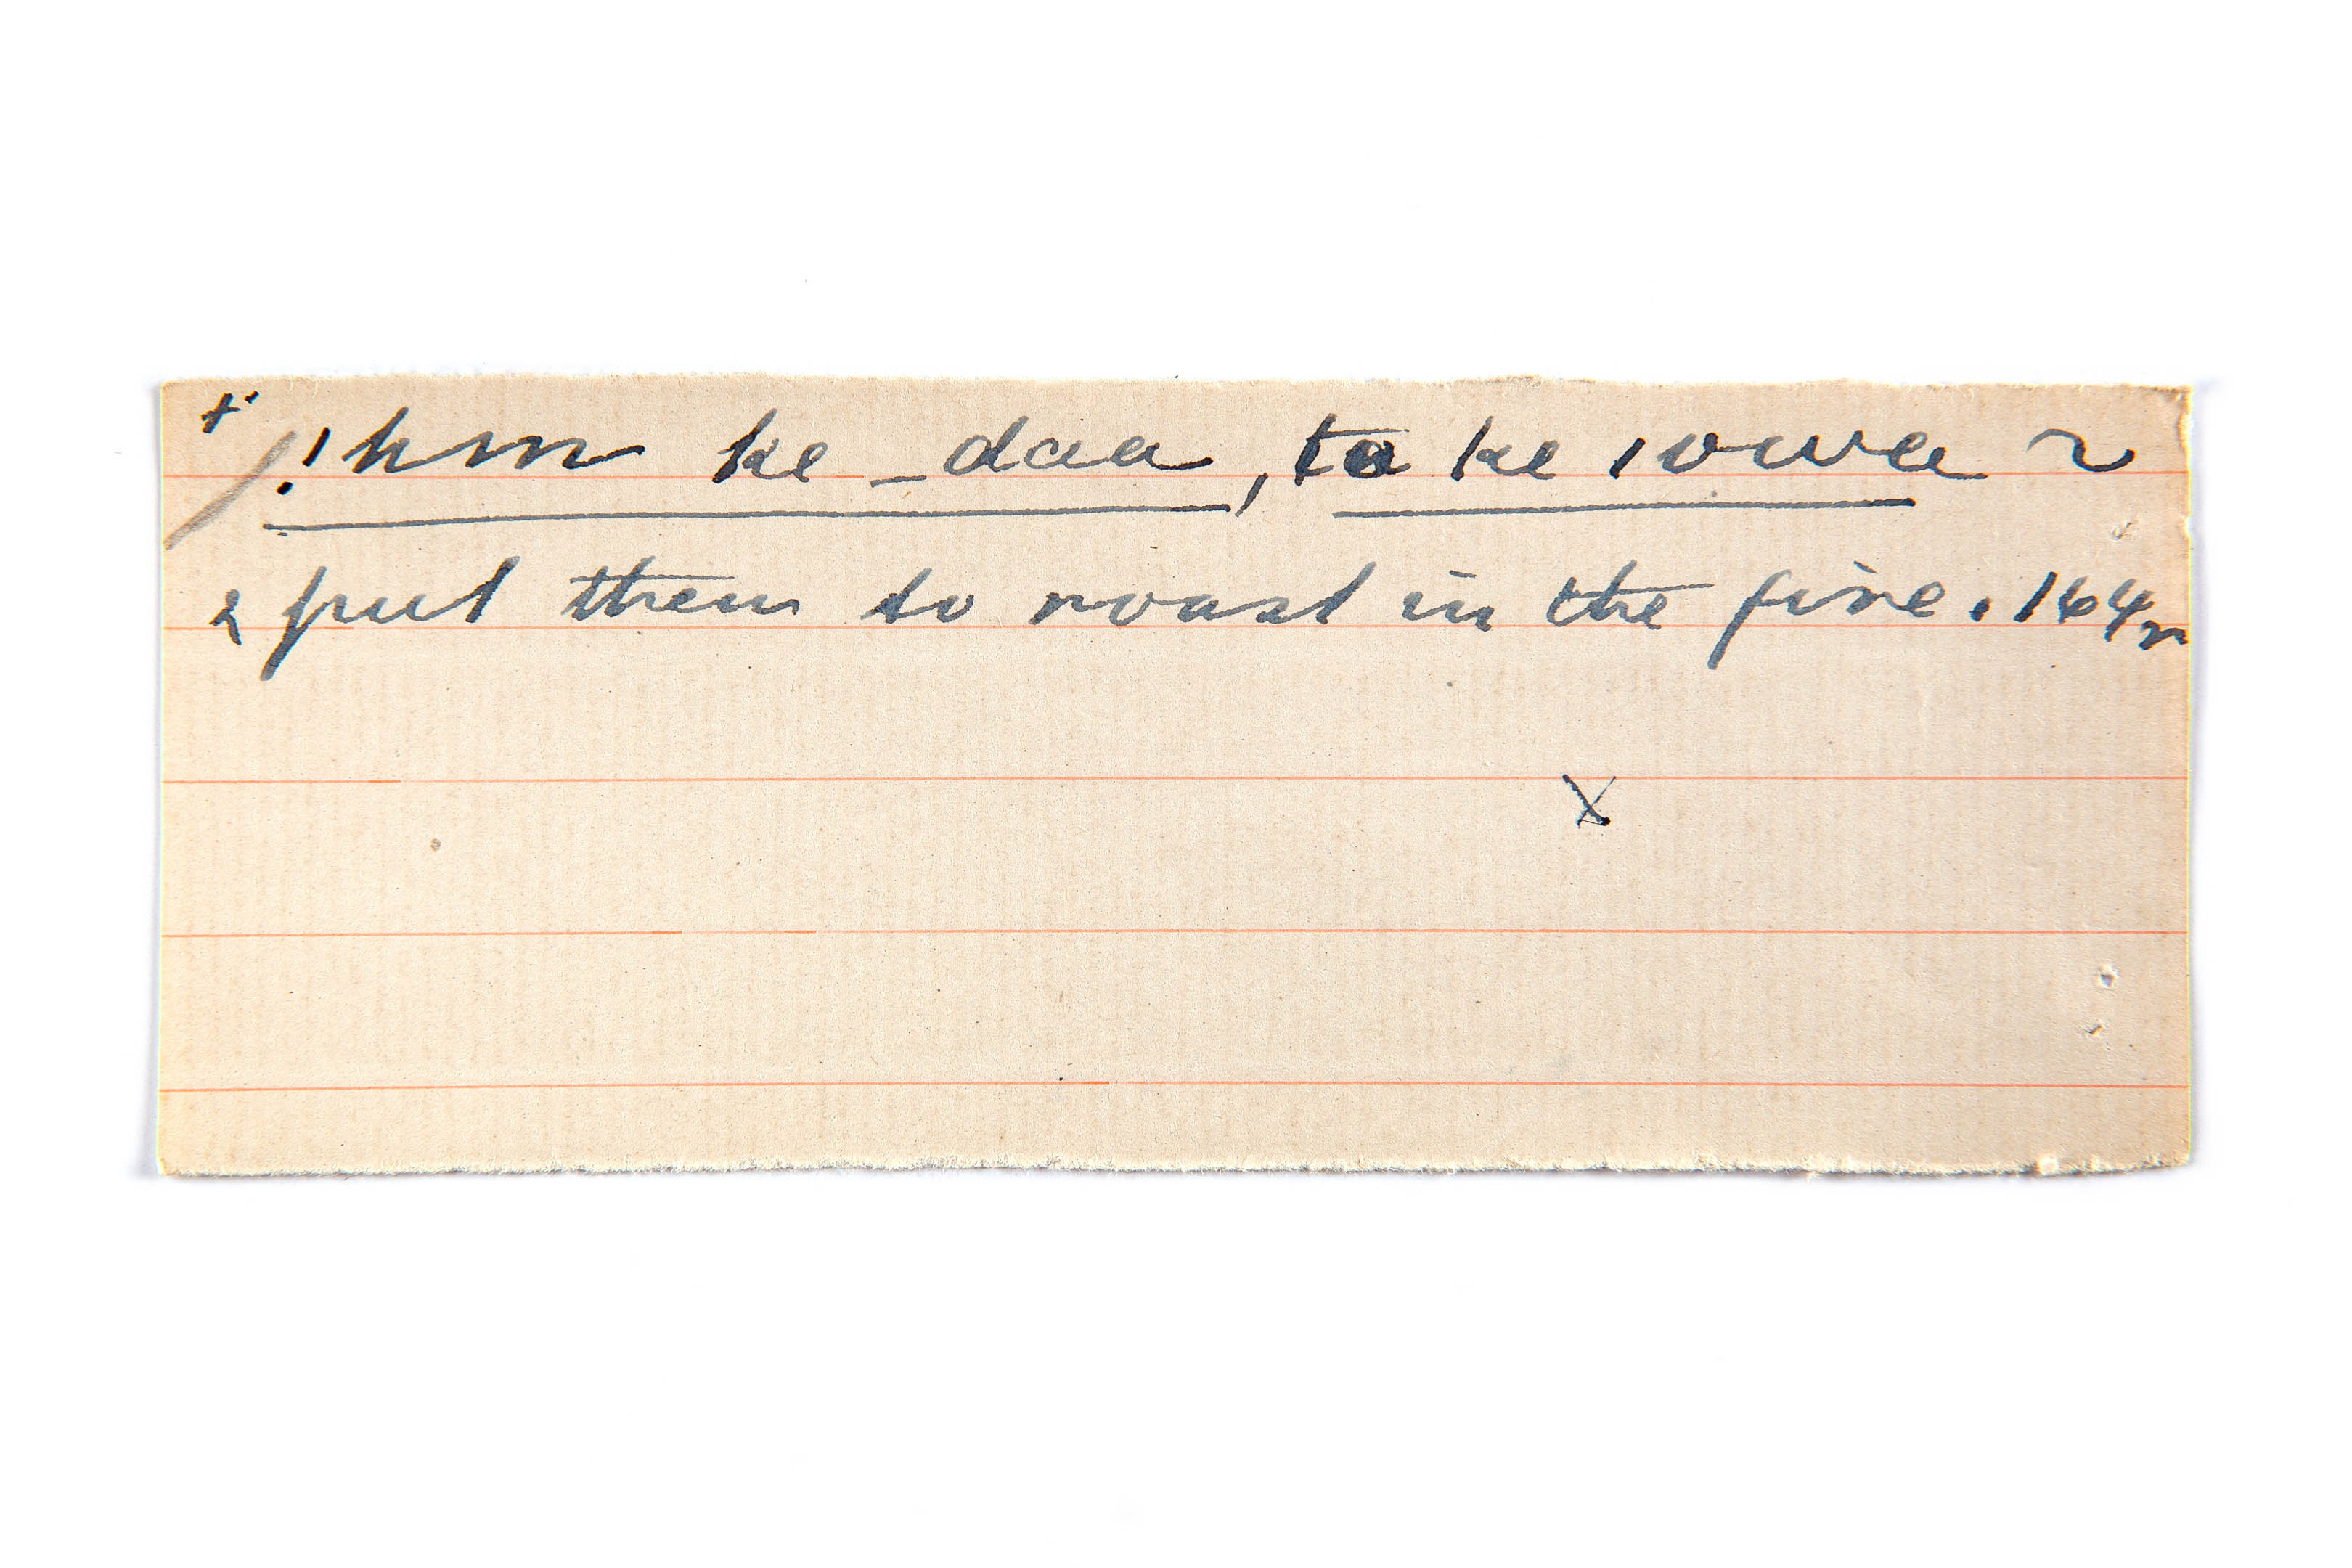 + !hm ke _ daa, to ke ıowa ~
& put them to roast in the fire. 164r
X